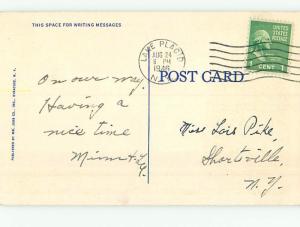 THIS SPACE FOR WRITING MESSAGES
LAKE PLACID
AUG 24
6 PM
1946
N.Y.
UNITED STATES
POSTAGE
1 CENT 1
POST CARD
On our way.
Having a
nice time
Miss Lois Pike,
Shortsville,
N.Y.